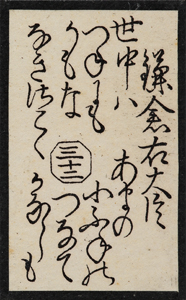 鎌倉右大臣
世中ハ
つねにも
かもな
なきさこく
あまの
小ふねの
つなて
かなしも
三十二